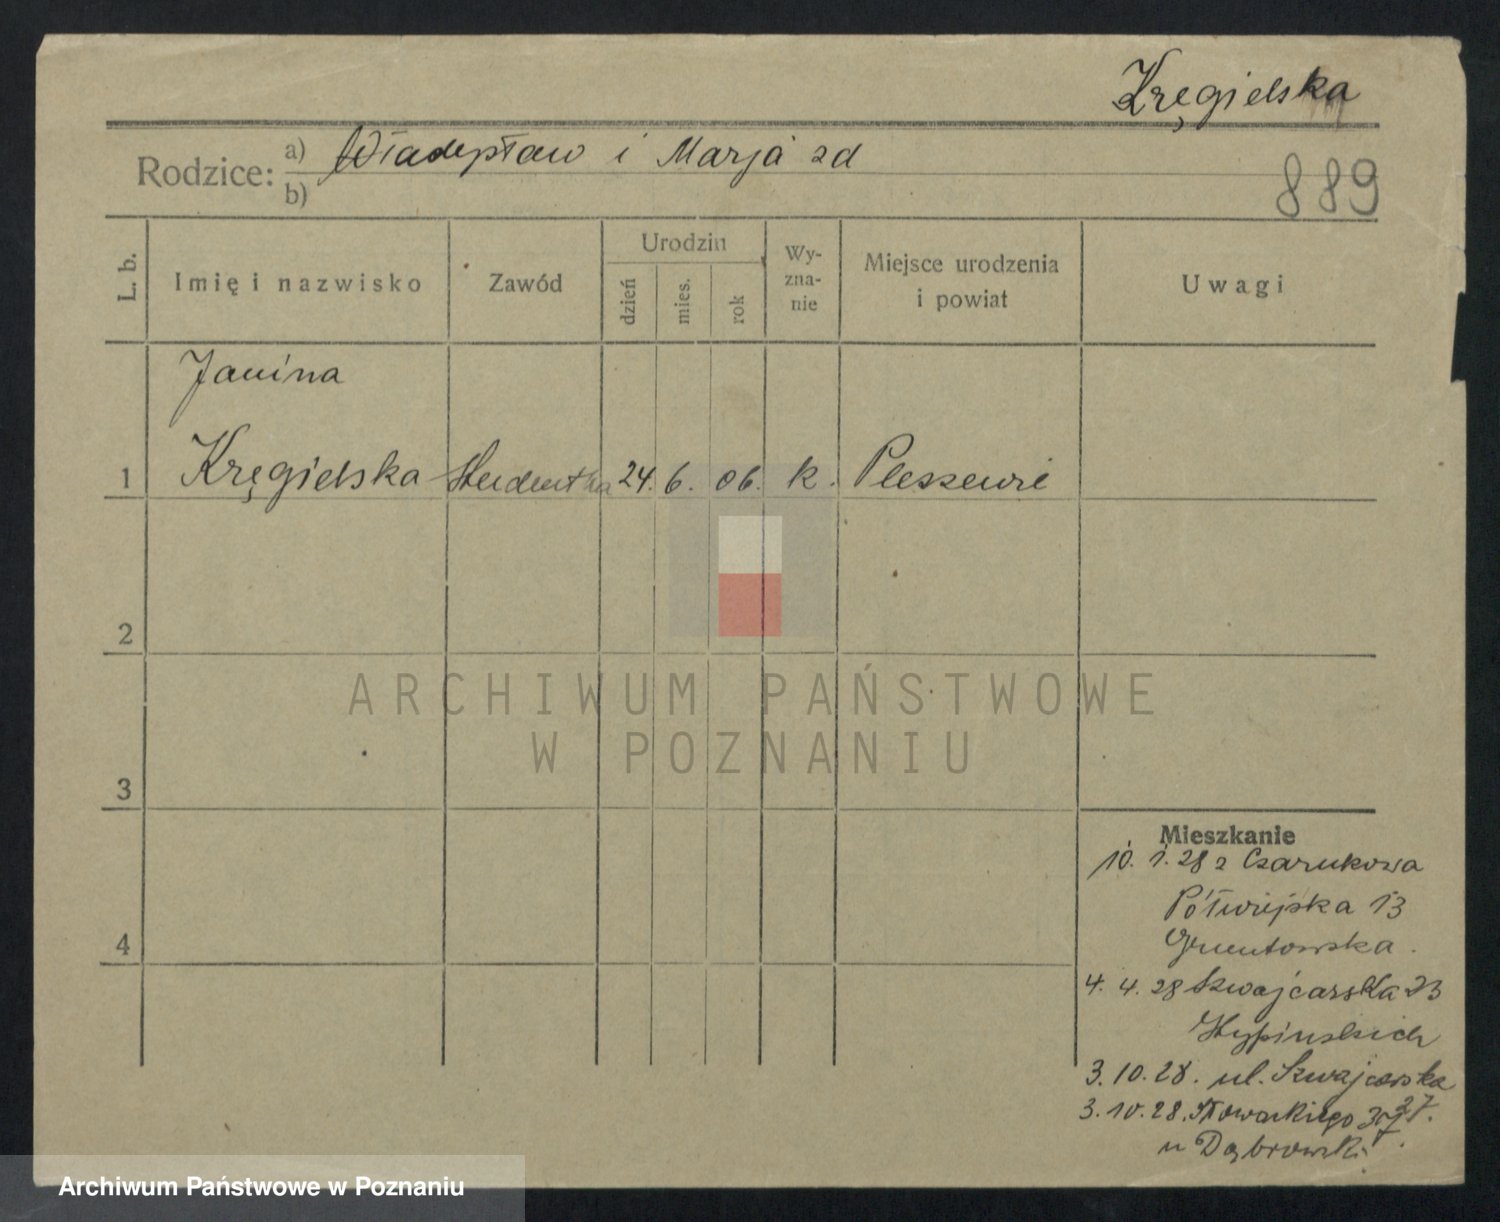 Kręgielska
Rodzice: a) Władysław i Marja zd
b)
889
L. b.
Imię i nazwisko
Zawód
Urodzin
dzień
mies.
rok
Wy-
zna-
nie
Miejsce urodzenia
i powiat
Uwagi
Janina
1 Kręgielska studentka 24. 6. 06. k. Pleszewie
2
3
4
Mieszkanie
10. 1. 28 z Czarnkowa
Półwiejska 13
4. 4. 28 Szwajcarska 23
3. 10. 28. ul. Szwajcarska
27.
3. 10. 28. Słowackiego
u Dąbrowski
ARCHIWUM PAŃSTWOWE
W POZNANIU
Archiwum Państwowe w Poznaniu